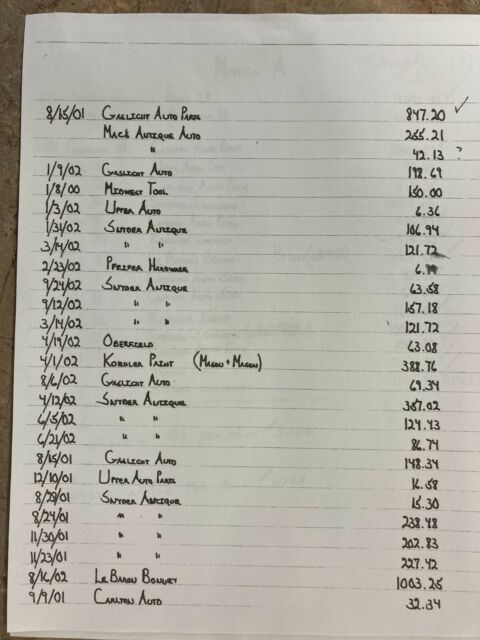 8/15/01 Gaslight Auto Parts 847.20 ✓
Mac's Antique Auto 255.21
" 42.13 ?
1/9/02 Gaslight Auto 198.69
1/8/00 Midwest Tool 150.00
1/3/02 Upper Auto 6.36
1/31/02 Snyder Antique 106.94
3/14/02 " " 121.72
2/23/02 Pfeifer Hardware
9/24/02 Snyder Antique 63.58
9/12/02 " " 157.18
3/14/02 " " 121.72
4/19/02 Oberfield 63.08
4/1/02 Kohuler Paint (Mason + Mason) 388.76
8/6/02 Gaslight Auto 69.34
4/12/02 Snyder Antique 357.02
6/5/02 " " 124.43
6/21/02 " " 86.74
8/15/01 Gaslight Auto 148.34
12/10/01 Upper Auto Parts 16.58
8/29/01 Snyder Antique 15.30
8/24/01 " " 238.48
11/30/01 " " 202.83
11/23/01 " " 227.42
8/16/02 LeBaron Bonney 1003.25
9/9/01 Carlton Auto 32.34